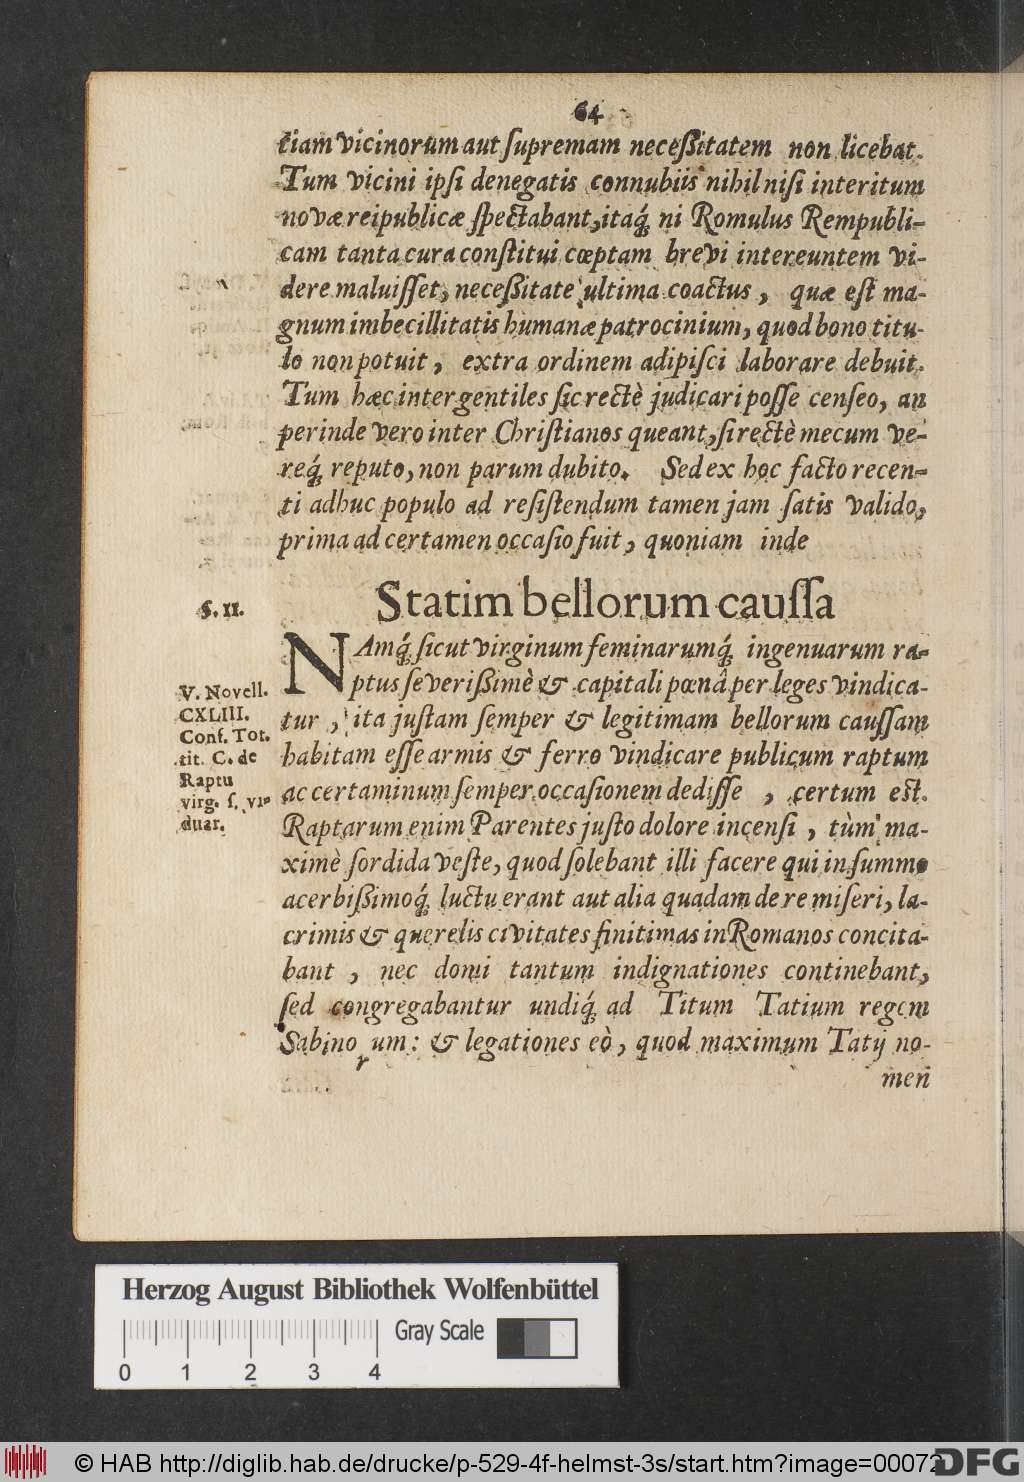 64
tiam vicinorum aut ſupremam neceßitatem non licebat.
Tum vicini ipſi denegatis connubiis nihil niſi interitum
novæ reipublicæ ſpectabant, itaq́; ni Romulus Rempubli-
cam tanta cura conſtitui cœptam brevi intereuntem vi-
dere maluiſſet, neceßitate ultima coactus, quæ eſt ma-
gnum imbecillitatis humanæ patrocinium, quod bono titu-
lo non potuit, extra ordinem adipiſci laborare debuit.
Tum hæc inter gentiles ſic rectè judicari poſſe cenſeo, an
perinde vero inter Chriſtianos queant, ſi rectè mecum ve-
req́; reputo, non parum dubito. Sed ex hoc facto recen-
ti adhuc populo ad reſiſtendum tamen jam ſatis valido,
prima ad certamen occaſio fuit, quoniam inde
Statim bellorum cauſſa
§. II.
NAmq́; ſicut virginum feminarumq́; ingenuarum ra-
ptus ſeverißimè & capitali pœnâ per leges vindica-
tur, ita juſtam ſemper & legitimam bellorum cauſſam
habitam eſſe armis & ferro vindicare publicum raptum
ac certaminum ſemper occaſionem dediſſe, certum eſt.
Raptarum enim Parentes juſto dolore incenſi, tùm ma-
ximè ſordida veſte, quod ſolebant illi facere qui in ſummo
acerbißimoq́; luctu erant aut alia quadam de re miſeri, la-
crimis & querelis civitates finitimas in Romanos concita-
bant, nec domi tantum indignationes continebant,
ſed congregabantur undiq́; ad Titum Tatium regem
Sabinorum: & legationes eò, quod maximum Tatij no-
men
V. Novell.
CXLIII.
Conf. Tot.
tit. C. de
Raptu
virg. ſ. vi-
duar.
Herzog August Bibliothek Wolfenbüttel
Gray Scale
0 1 2 3 4
© HAB http://diglib.hab.de/drucke/p-529-4f-helmst-3s/start.htm?image=00072
DFG